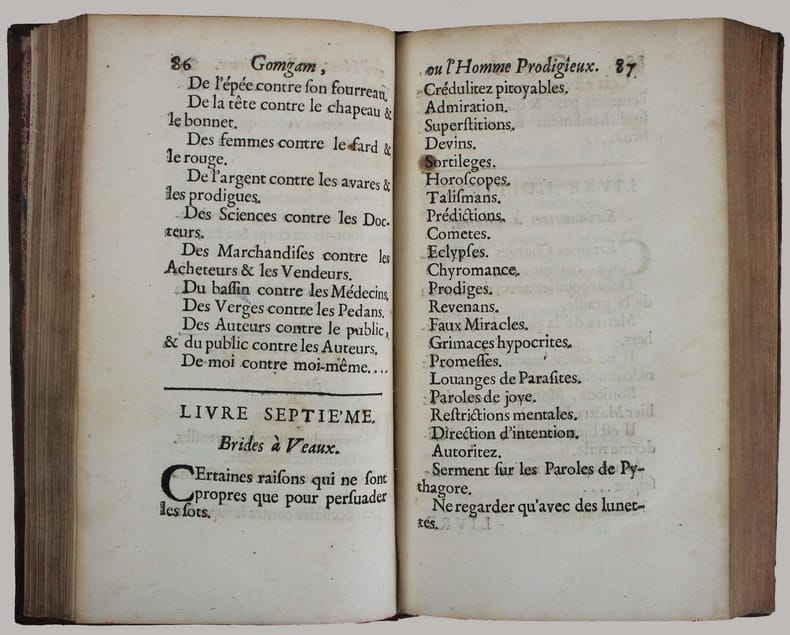 86 Gomgam,
De l'épée contre ſon fourreau.
De la tête contre le chapeau &
le bonnet.
Des femmes contre le fard &
le rouge.
De l'argent contre les avares &
les prodigues.
Des Sciences contre les Doc-
teurs.
Des Marchandiſes contre les
Acheteurs & les Vendeurs.
Du baſſin contre les Médecins.
Des Verges contre les Pedans.
Des Auteurs contre le public,
& du public contre les Auteurs.
De moi contre moi-même....
LIVRE SEPTIE'ME.
Brides à Veaux.
CErtaines raiſons qui ne ſont
propres que pour perſuader
les ſots.
ou l'Homme Prodigieux. 87
Crédulitez pitoyables.
Admiration.
Superſtitions.
Devins.
Sortileges.
Horoſcopes.
Taliſmans.
Prédictions.
Cometes.
Eclypſes.
Chyromance.
Prodiges.
Revenans.
Faux Miracles.
Grimaces hypocrites.
Promeſſes.
Louanges de Paraſites.
Paroles de joye.
Reſtrictions mentales.
Direction d'intention.
Autoritez.
Serment ſur les Paroles de Py-
thagore.
Ne regarder qu'avec des lunet-
tes.